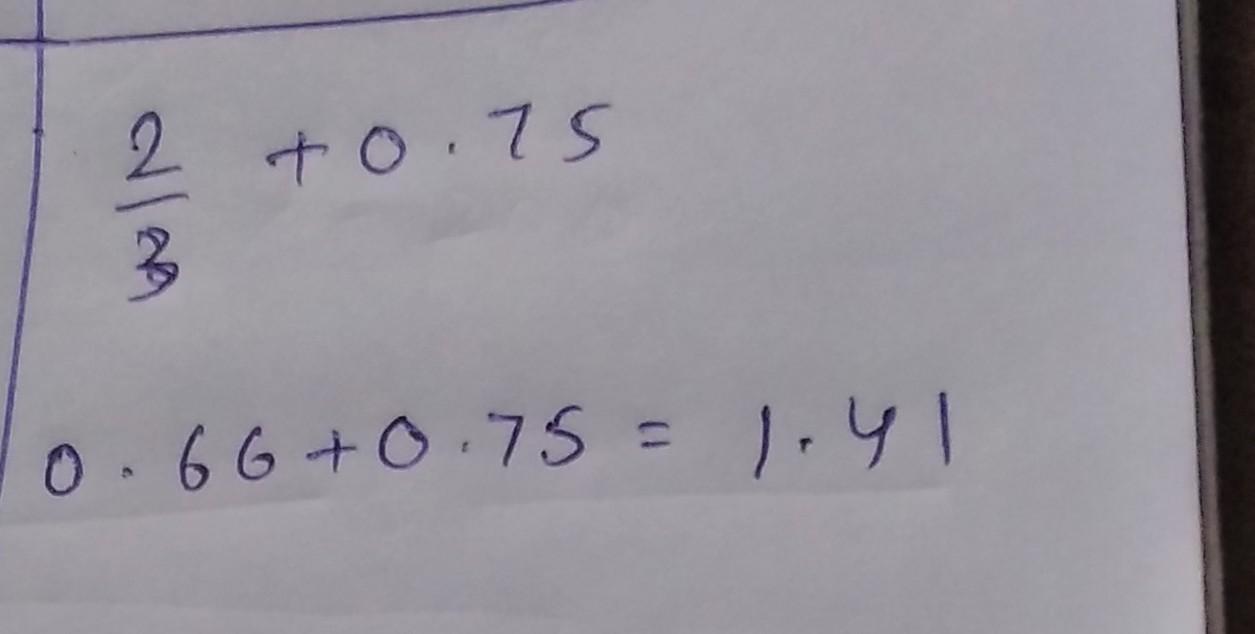 2/3 + 0.75
0.66 + 0.75 = 1.41